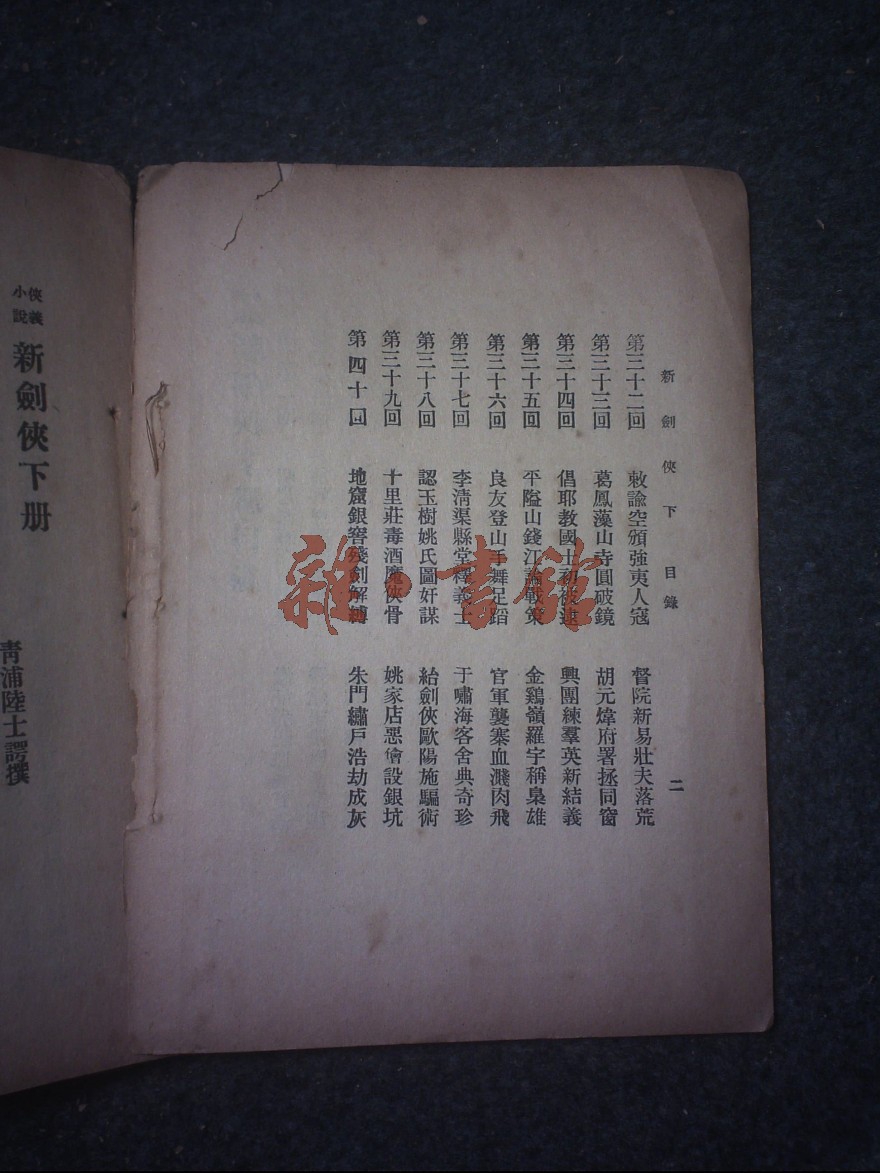 新劍俠下目錄 二
第三十二回 敕諭空頒強夷人寇 督院新易壯夫落荒
第三十三回 葛鳳藻山寺圓破鏡 胡元煒府署拯同窗
第三十四回 倡耶教國士初被逮 興團練羣英新結義
第三十五回 平隘山錢江論戰策 金鷄嶺羅宇稱梟雄
第三十六回 良友登山手舞足蹈 官軍襲寨血濺肉飛
第三十七回 李淸渠縣堂釋義士 于嘯海客舍典奇珍
第三十八回 認玉樹姚氏圖奸謀 給劍俠歐陽施騙術
第三十九回 十里莊毒酒魔俠骨 姚家店惡儈設銀坑
第四十回 地窟銀窖殘劍解縛 朱門繡戶浩劫成灰
俠義小說 新劍俠下册
靑浦陸士諤撰
雜·書館